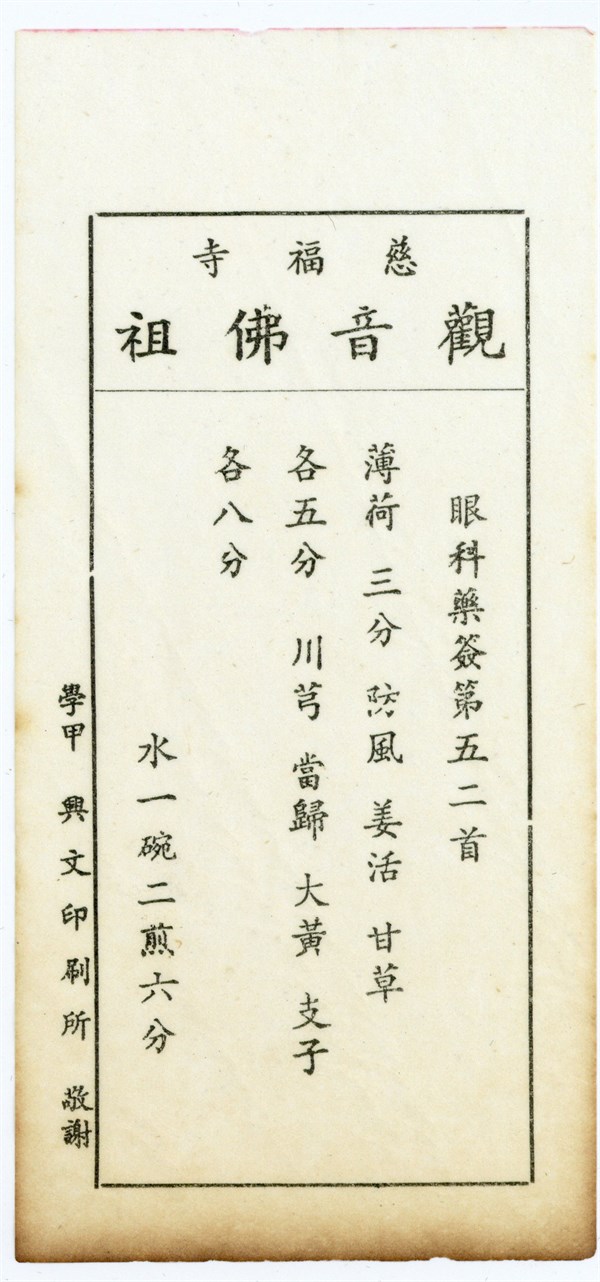 慈福寺
觀音佛祖
眼科藥簽第五二首
薄荷 三分 防風 姜活 甘草
各五分 川芎 當歸 大黃 支子
各八分
水一碗二煎六分
學甲 興文印刷所 敬謝